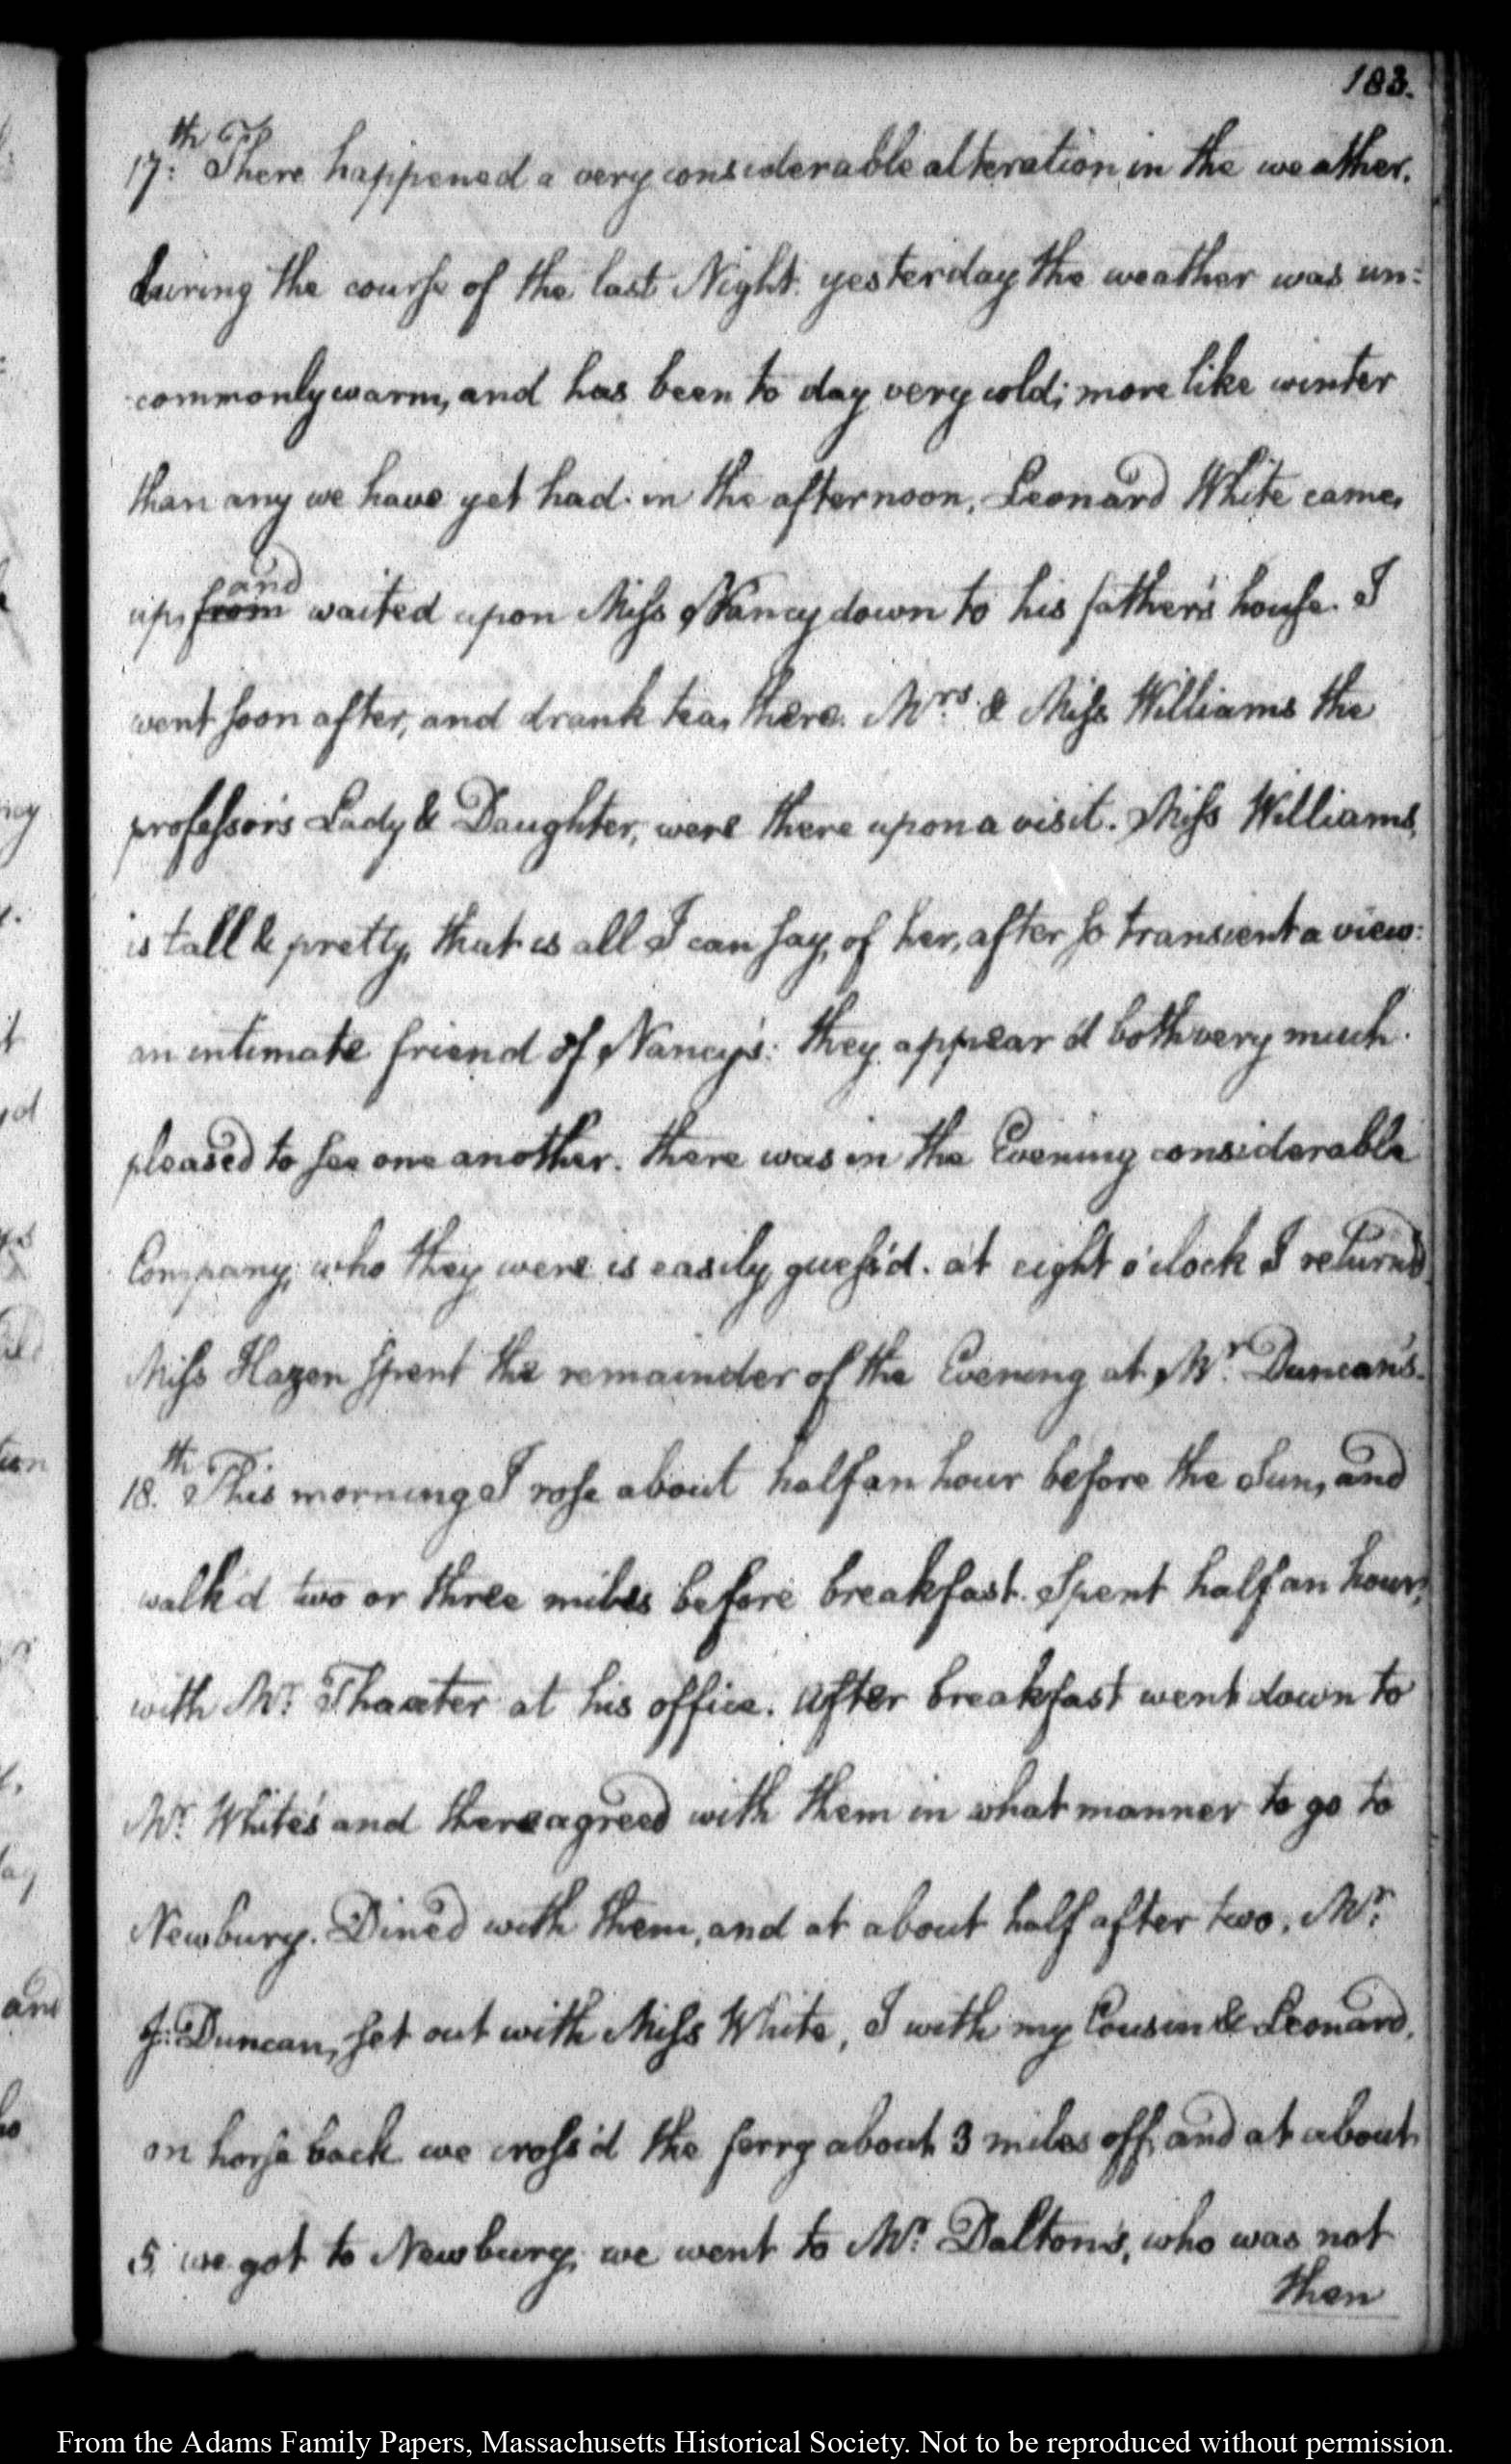 183.
17.th There happened a very considerable alteration in the weather,
during the course of the last Night. yesterday the weather was un=
commonly warm, and has been to day very cold; more like winter
than any we have yet had. in the afternoon, Leonard White came,
and
up, from waited upon Miss Nancy down to his father's house. I
went soon after, and drank tea, there. Mrs. & Miss Williams the
professor's Lady & Daughter, were there upon a visit. Miss Williams,
is tall & pretty, that is all I can say, of her, after so transient a view:
an intimate friend of Nancy's: they appear'd both very much
pleased to see one another. there was in the Evening considerable
Company; who they were is easily guess'd. at eight o'clock I returnd
Miss Hazen spent the remainder of the Evening at Mr. Duncan's.
18.th This morning I rose about half an hour before the Sun, and
walk'd two or three miles before breakfast. Spent half an hour,
with Mr. Thaxter at his office. After breakfast went down to
Mr. White's and there agreed with them in what manner to go to
Newbury. Dined with them, and at about half after two, Mr.
J: Duncan, set out with Miss White, I with my Cousin & Leonard,
on horse back we cross'd the ferry about 3 miles off, and at about
5, we got to Newbury, we went to Mr. Dalton's, who was not
then
From the Adams Family Papers, Massachusetts Historical Society. Not to be reproduced without permission.